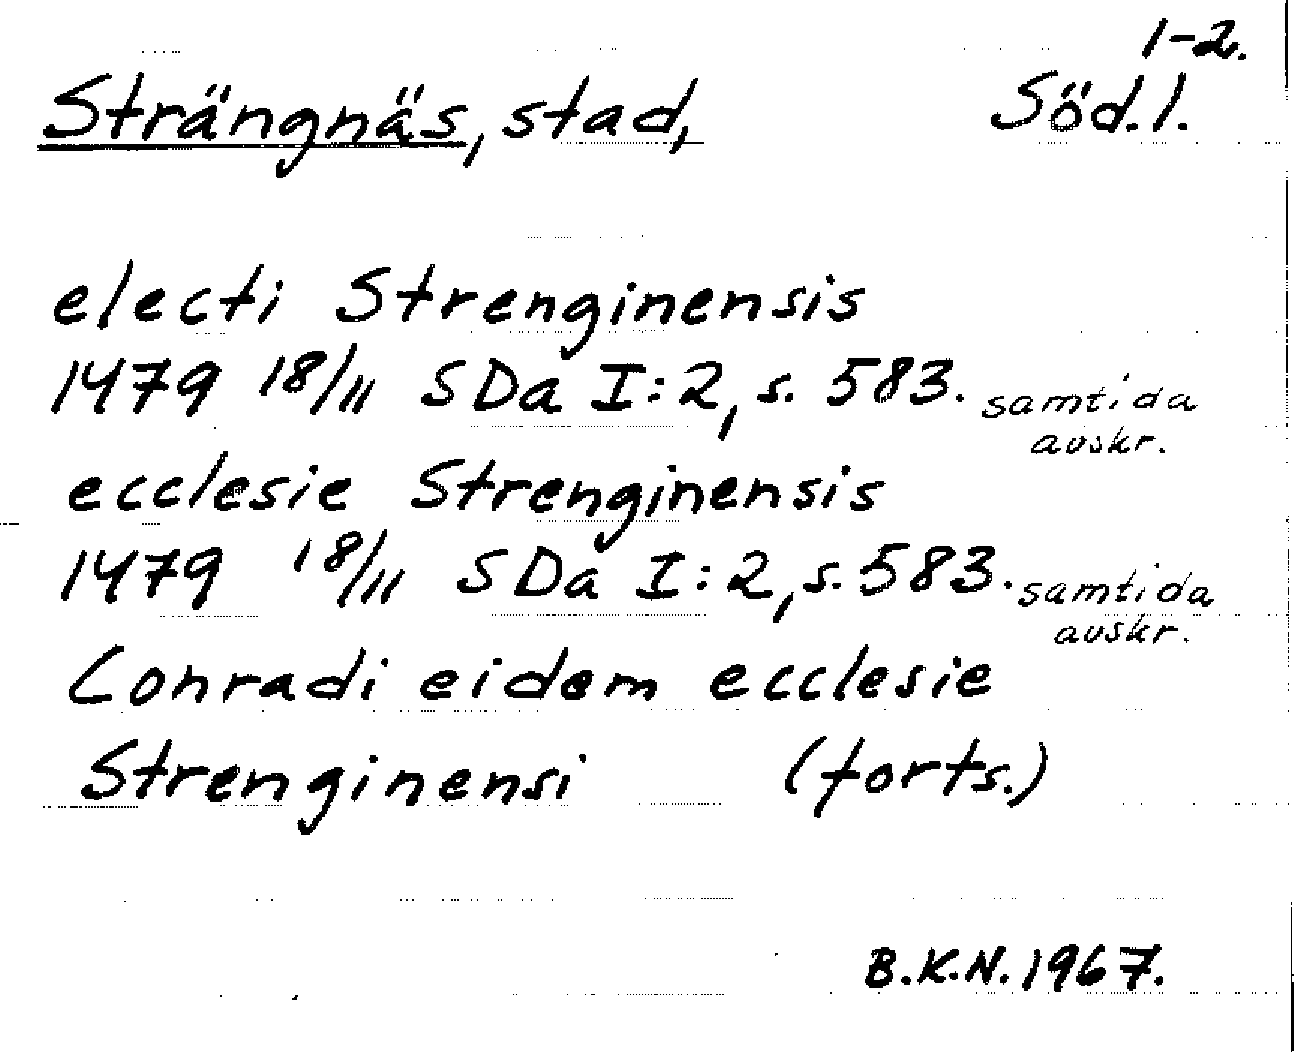 1-2.
Strängnäs, stad, Söd.l.
electi Strenginensis
1479 18/11 SDa I:2, s. 583. samtida
avskr.
ecclesie Strenginensis
1479 18/11 SDa I:2, s. 583. samtida
avskr.
Conradi eidem ecclesie
Strenginensi (forts.)
B.K.N. 1967.